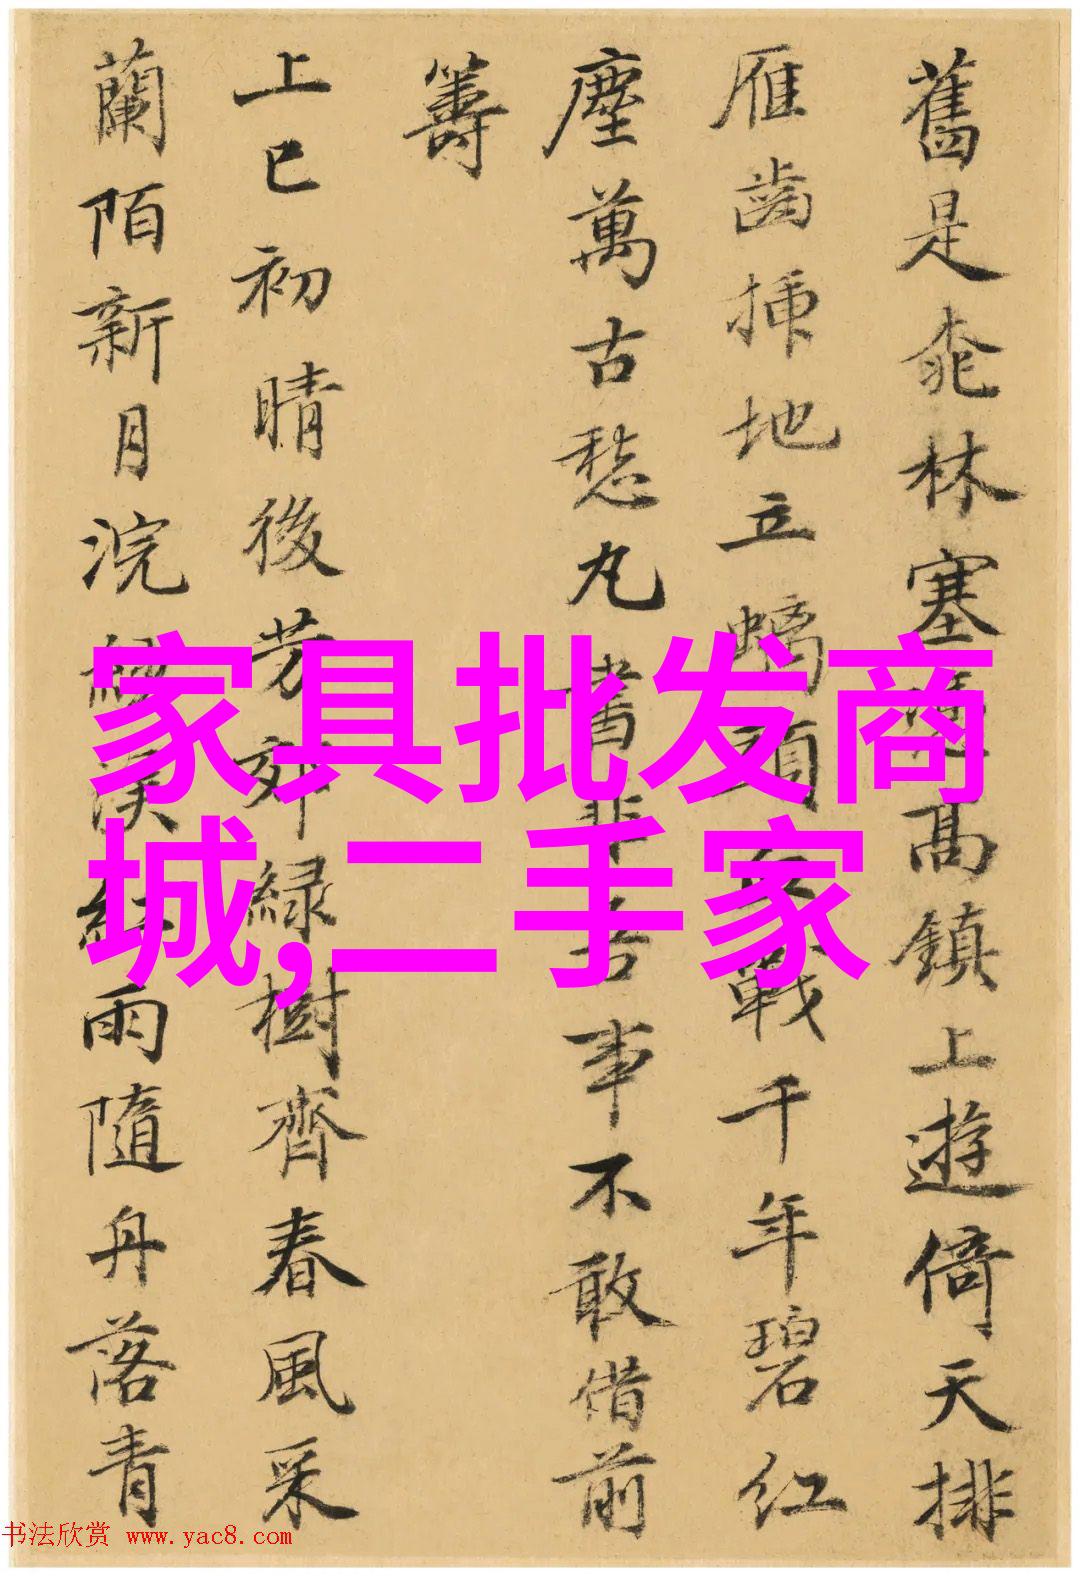 舊是旄林塞邊高鎮上遊倚天排
雁齒插地立螭頭百戰千年碧紅
塵萬古愁丸書非吾事不敢借前
籌
上巳初晴後芳郊綠樹齊春風采
蘭陌新月浣溪紅雨隨舟落青
家具批发商
城,二手家
书法欣赏 www.yac8.com